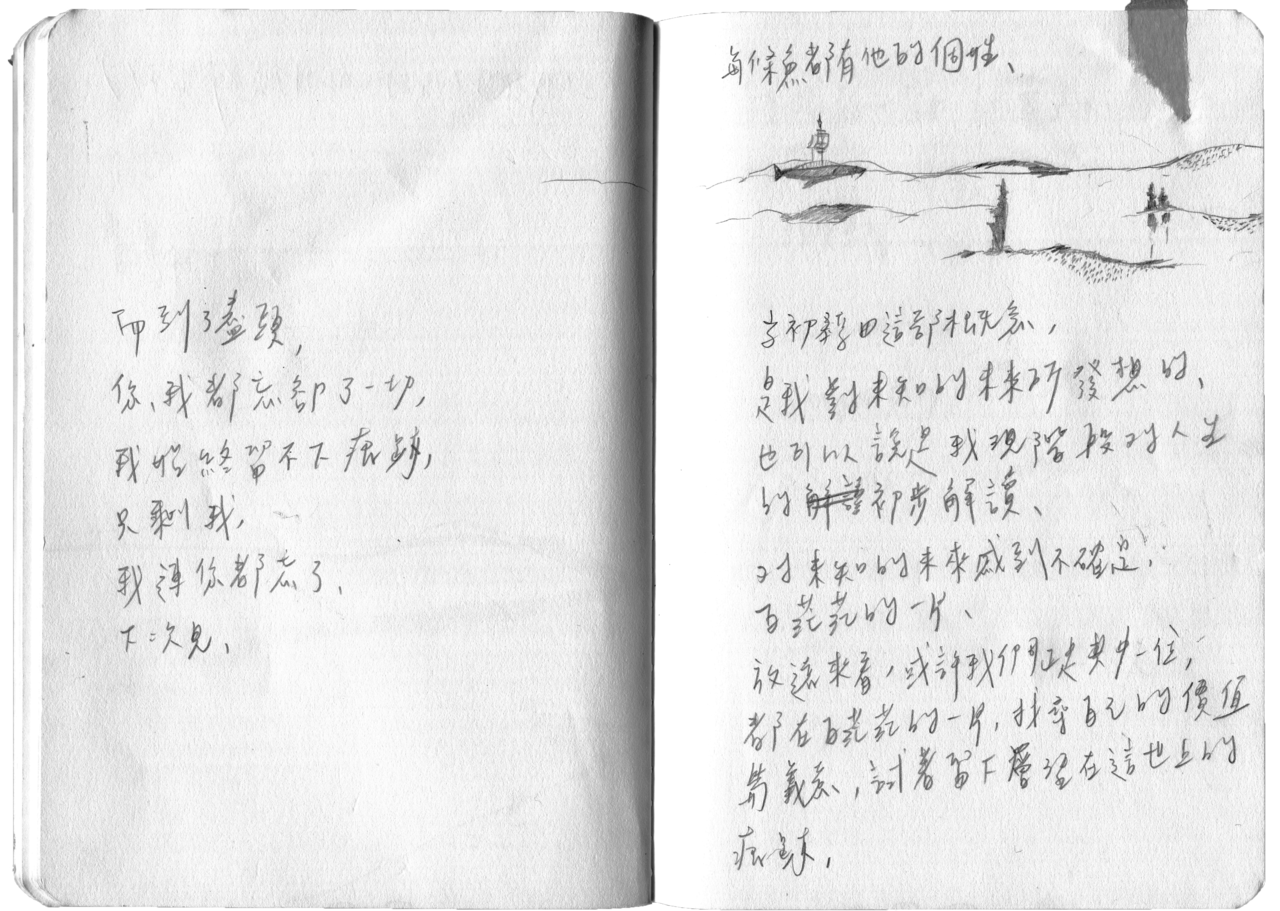 而到了盡頭,
你、我都忘卻了一切,
我始終留不下痕跡,
只剩我,
我連你都忘了、
下次見、
每條魚都有他的個性、
這部概念,
是我對未知的未來所發想的、
也可以說是我現階段对人生
的解讀初步解讀、
对未知的未來感到不確定,
白茫茫的一片、
放遠來看,或許我們正是其中一位,
都在白茫茫的一片,找尋自己的價值
與義意,試著留下曾經在這世上的
痕跡,